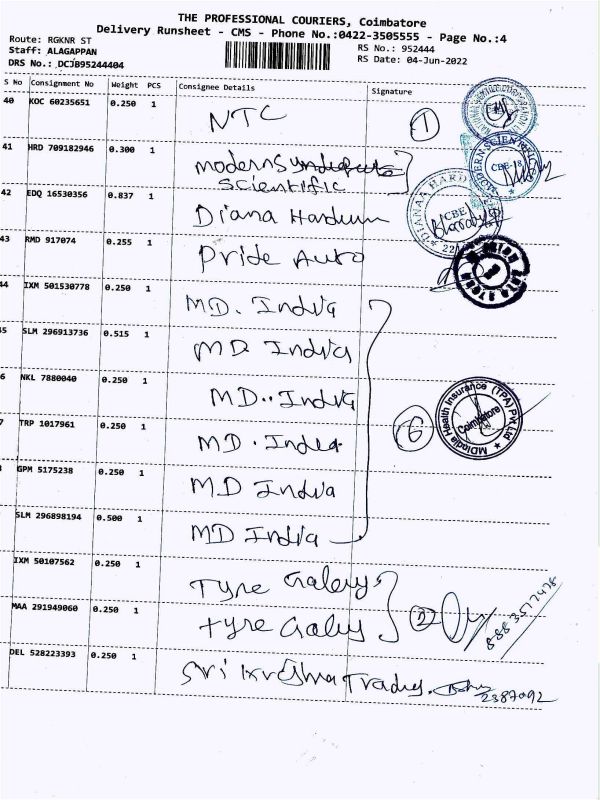 THE PROFESSIONAL COURIERS, Coimbatore
Delivery Runsheet - CMS - Phone No.:0422-3505555 - Page No.:4
Route: RGKNR ST
Staff: ALAGAPPAN
DRS No.: DCJB95244404
RS No.: 952444
RS Date: 04-Jun-2022
S No Consignment No Weight PCS Consignee Details Signature
40 KOC 60235651 0.250 1 NTC 1
41 HRD 709182946 0.300 1 moderns
Scientific
42 EDQ 16530356 0.837 1 Diana Hardium
43 RMD 917074 0.255 1 Pride Auto
44 IXM 501530778 0.250 1 MD. India
5 SLM 296913736 0.515 1 MD India
6 NKL 7880040 0.250 1 MD. India
7 TRP 1017961 0.250 1 MD. India
GPM 5175238 0.250 1 MD India
SLM 296898194 0.500 1 MD India
6
MDIndia Health Insurance (TPA) Pvt Ltd
Coimbatore
IXM 50107562 0.250 1 Tyre Galery
MAA 291949060 0.250 1 tyre Galey
DEL 528223393 0.250 1 Sri Krishna Tradus.
2387092